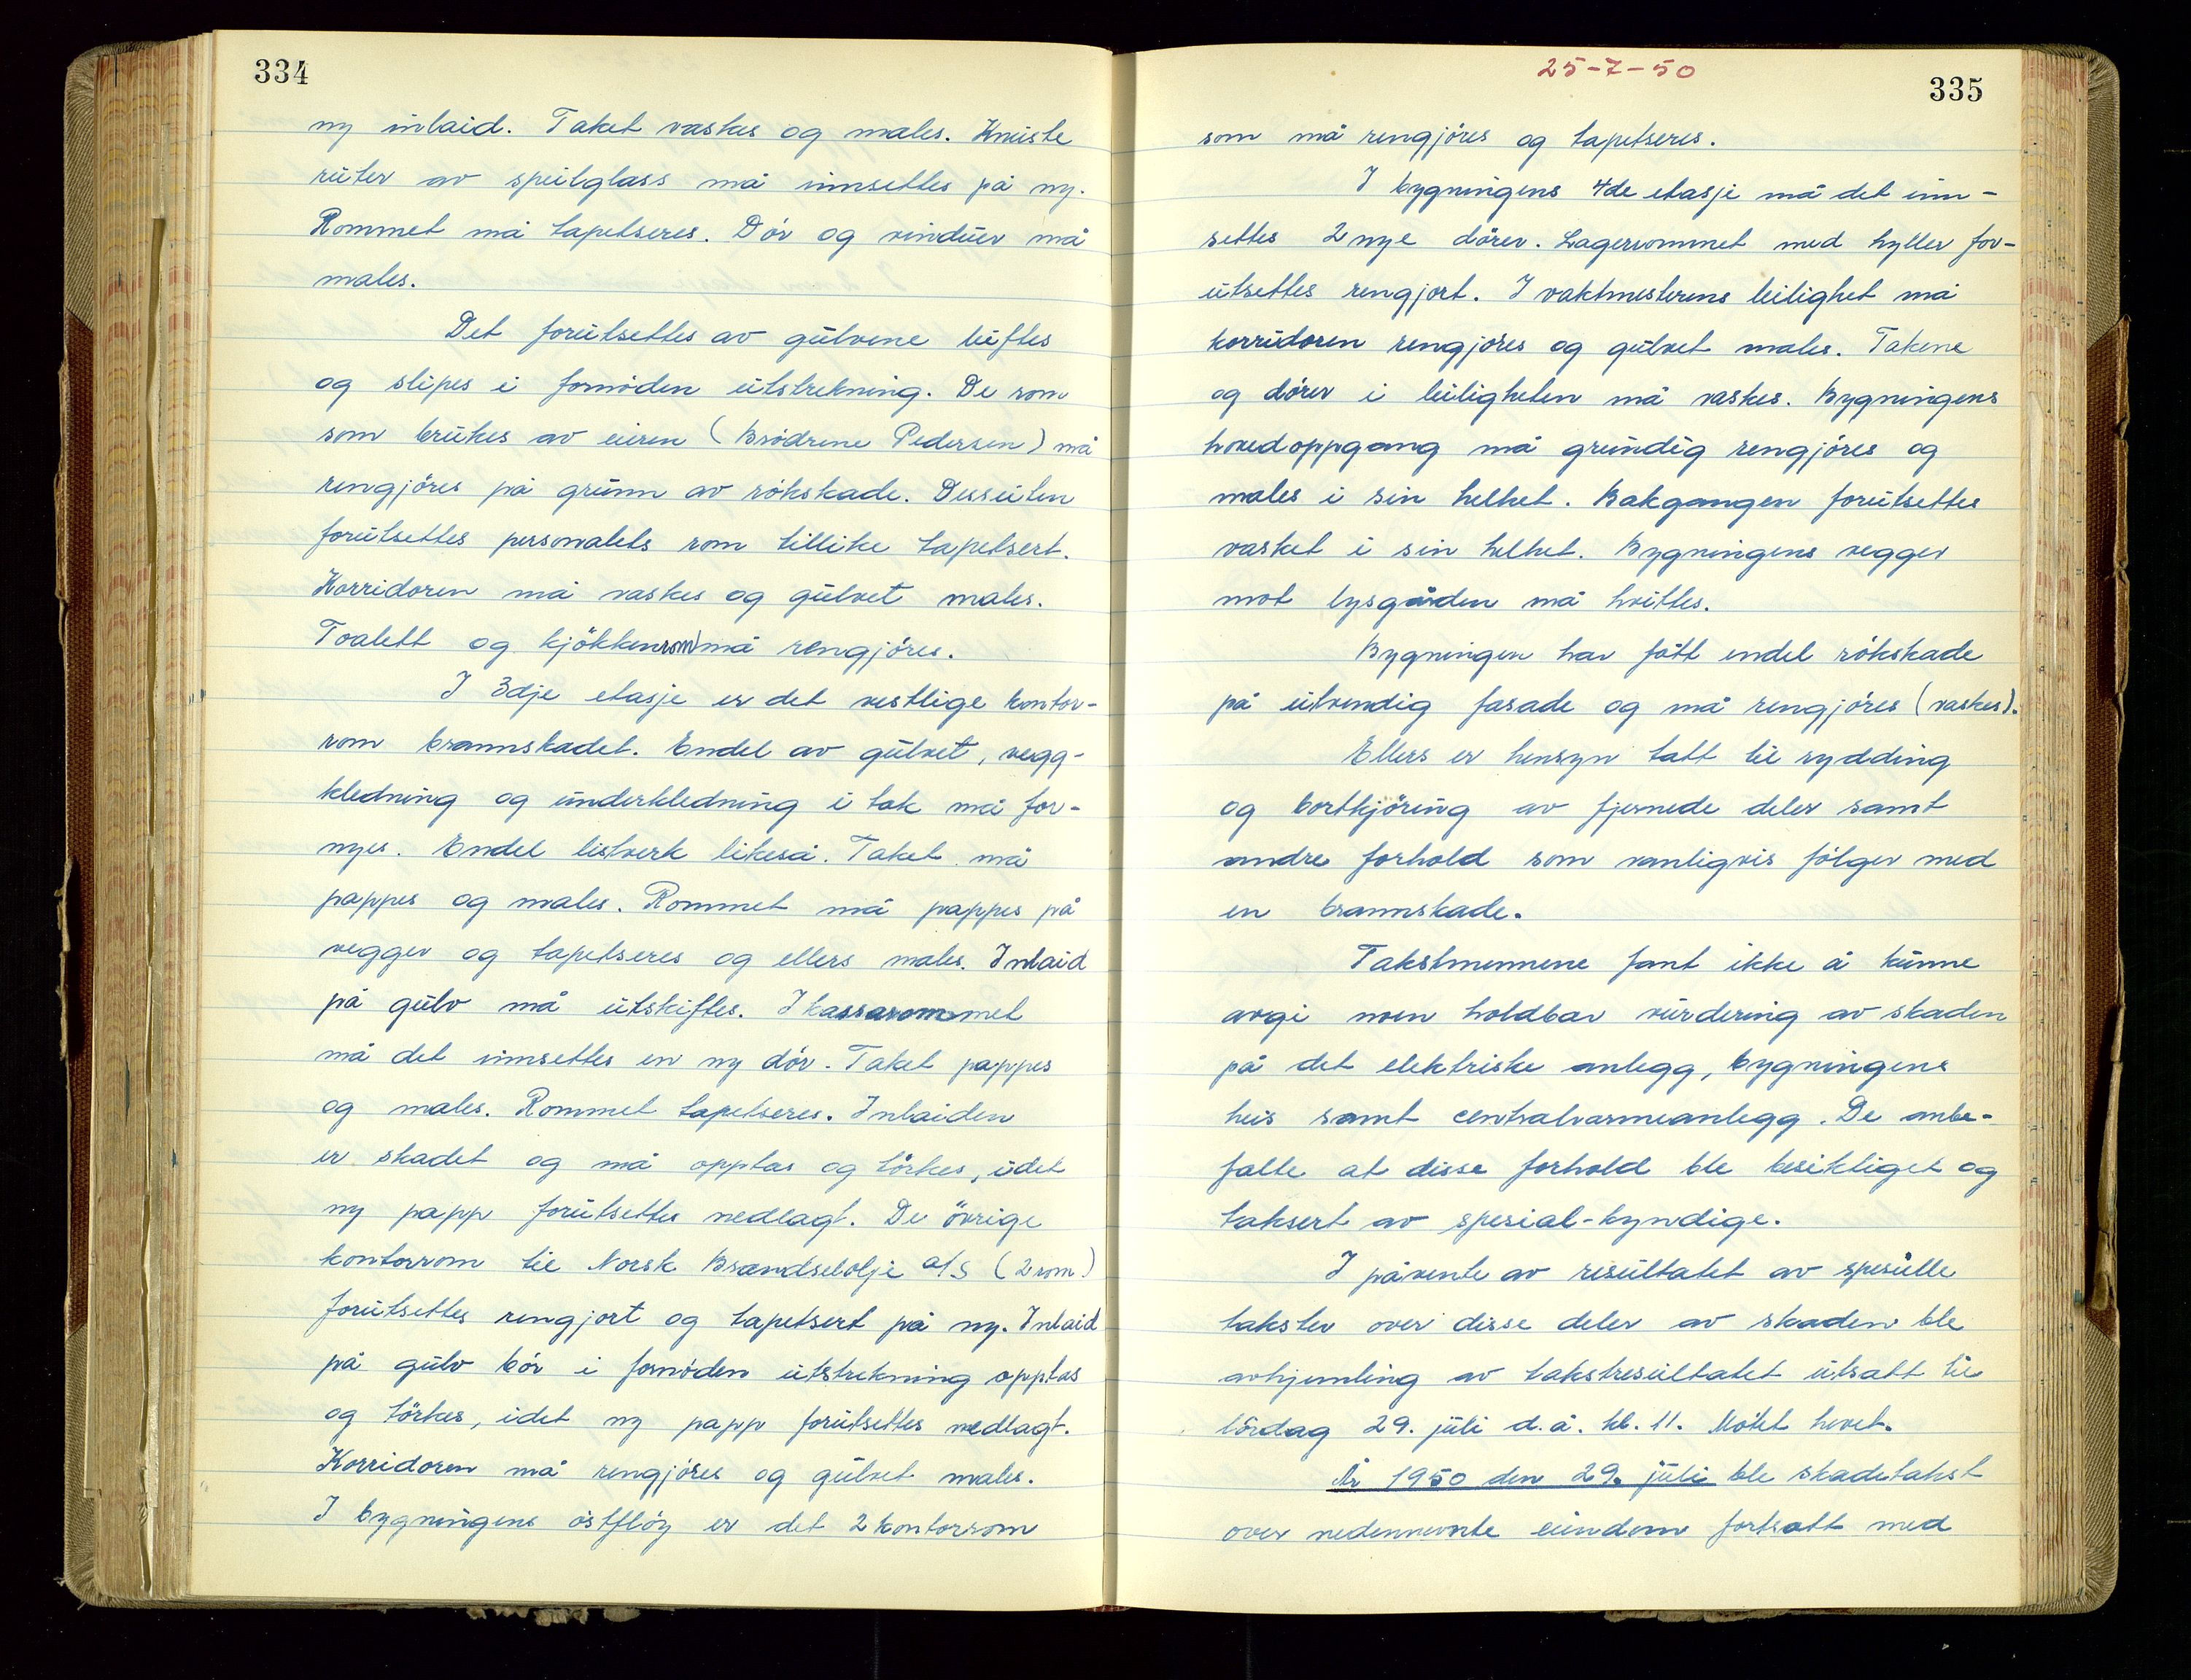 334
ny inlaid. Taket vaskes og males. Knuste
ruter av speilglass må innsettes på ny.
Rommet må tapetseres. Dör og vinduer må
males.
Det forutsettes av gulvene luftes
og slipes i fornöden utstrekning. De rom
som brukes av eieren (Brödrene Pedersen) må
rengjöres på grunn av rökskade. Dessuten
forutsettes personalets rom tillike tapetsert.
Korridoren må vaskes og gulvet males.
Toalett og kjökkenrom må rengjöres.
I 3dje etasje er det vestlige kontor-
rom brannskadet. Endel av gulvet, vegg-
kledning og underkledning i tak må for-
nyes. Endel listverk likeså. Taket må
pappes og males. Rommet må pappes på
vegger og tapetseres og ellers males. Inlaid
på gulv må utskiftes. I kassarommet
må det innsettes en ny dör. Taket pappes
og males. Rommet tapetseres. Inlaiden
er skadet og må opptas og törkes, idet
ny papp forutsettes nedlagt. De övrige
kontorrom til Norsk Brændselolje a/s (2 rom)
forutsettes rengjort og tapetsert på ny. Inlaid
på gulv bör i fornöden utstrekning opptas
og törkes, idet ny papp forutsettes nedlagt.
Korridoren må rengjöres og gulvet males.
I bygningens östflöy er det 2 kontorrom
25-7-50
335
som må rengjöres og tapetseres.
I bygningens 4de etasje må det inn-
settes 2 nye dörer. Lagerrommet med hyller for-
utsettes rengjort. I vaktmesterens leilighet må
korridoren rengjöres og gulvet males. Takene
og dörer i leiligheten må vaskes. Bygningens
hovedoppgang må grundig rengjöres og
males i sin helhet. Bakgangen forutsettes
vasket i sin helhet. Bygningens vegger
mot lysgården må hvittes.
Bygningen har fått endel rökskade
på utvendig fasade og må rengjöres (vaskes).
Ellers er hensyn tatt til rydding
og bortkjöring av fjernede deler samt
andre forhold som vanligvis fölger med
en brannskade.
Takstmennene fant ikke å kunne
avgi noen holdbar vurdering av skaden
på det elektriske anlegg, bygningens
heis samt centralvarmeanlegg. De anbe-
falte at disse forhold ble besiktiget og
taksert av spesial-kyndige.
I påvente av resultatet av spesielle
takster over disse deler av skaden ble
avhjemling av takstresultatet utsatt til
lördag 29. juli d.å. kl. 11. Mötet hevet.
År 1950 den 29. juli ble skadetakst
over nedennevnte eiendom fortsatt med